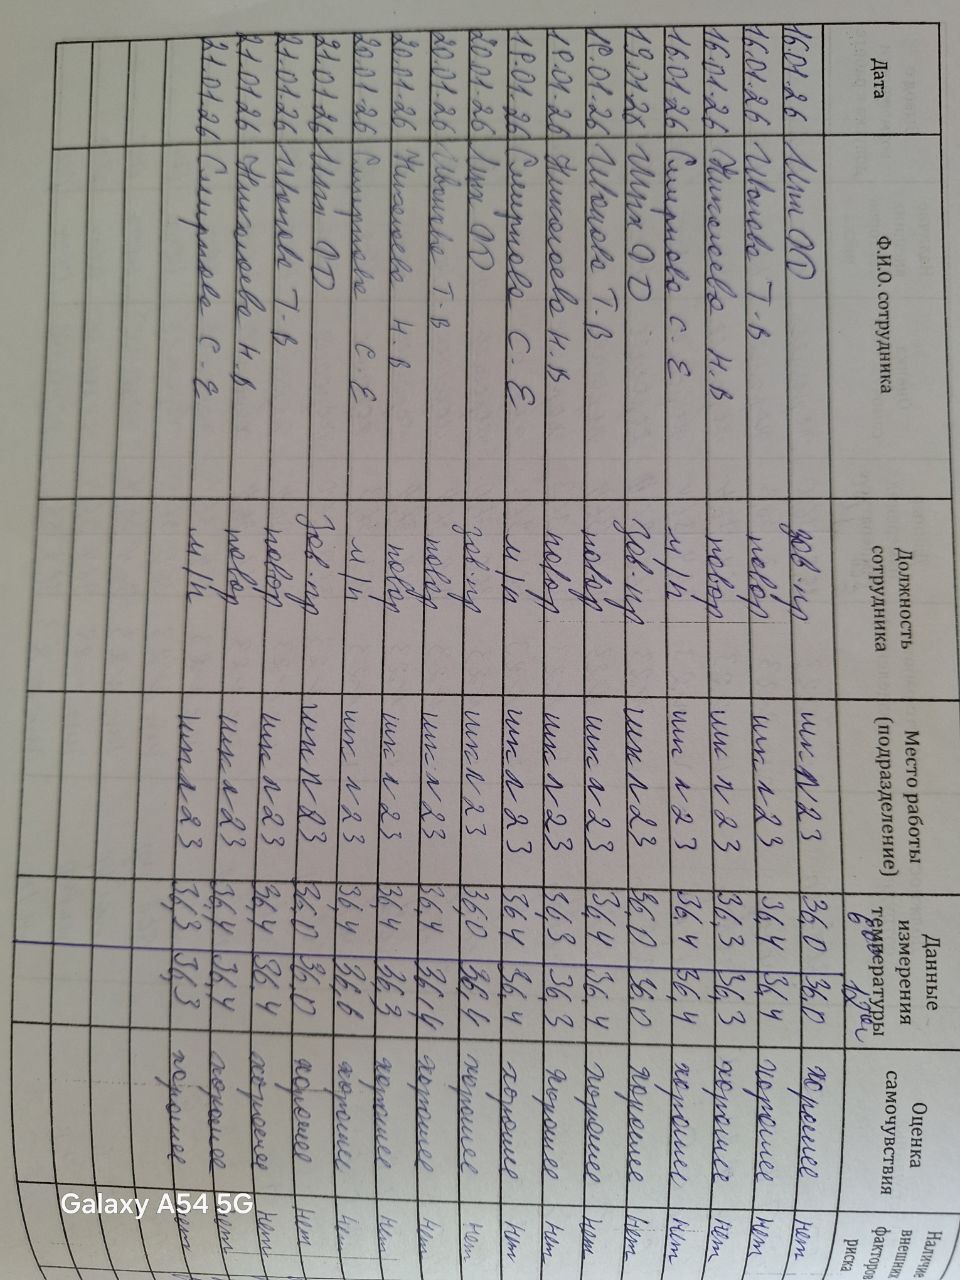 Дата Ф.И.О. сотрудника Должность сотрудника Место работы (подразделение) Данные измерения температуры Оценка самочувствия Наличие внешних факторов риска
16.01.26 зав.пр шк л 23 36,0 36,0 хорошее нет
16.01.26 Иванова Т.В повар шк л 23 36,4 36,4 хорошее нет
16.01.26 Николаева Н.В повар шк л 23 36,3 36,3 хорошее нет
16.01.26 Смирнова С.Е м/п шк л 23 36,4 36,4 хорошее нет
19.01.26 зав.пр шк л 23 36,0 36,0 хорошее нет
19.01.26 Иванова Т.В повар шк л 23 36,4 36,4 хорошее нет
19.01.26 Николаева Н.В повар шк л 23 36,3 36,3 хорошее нет
19.01.26 Смирнова С.Е м/п шк л 23 36,4 36,4 хорошее нет
20.01.26 зав.пр шк л 23 36,0 36,4 хорошее нет
20.01.26 Иванова Т.В повар шк л 23 36,4 36,4 хорошее нет
20.01.26 Николаева Н.В повар шк л 23 36,4 36,3 хорошее нет
20.01.26 Смирнова С.Е м/п шк л 23 36,4 36,6 хорошее нет
21.01.26 зав.пр шк л 23 36,0 36,0 хорошее нет
21.01.26 Иванова Т.В повар шк л 23 36,4 36,4 хорошее нет
21.01.26 Николаева Н.В повар шк л 23 36,4 36,4 хорошее нет
21.01.26 Смирнова С.Е м/п шк л 23 36,3 36,3 хорошее нет
Galaxy A54 5G